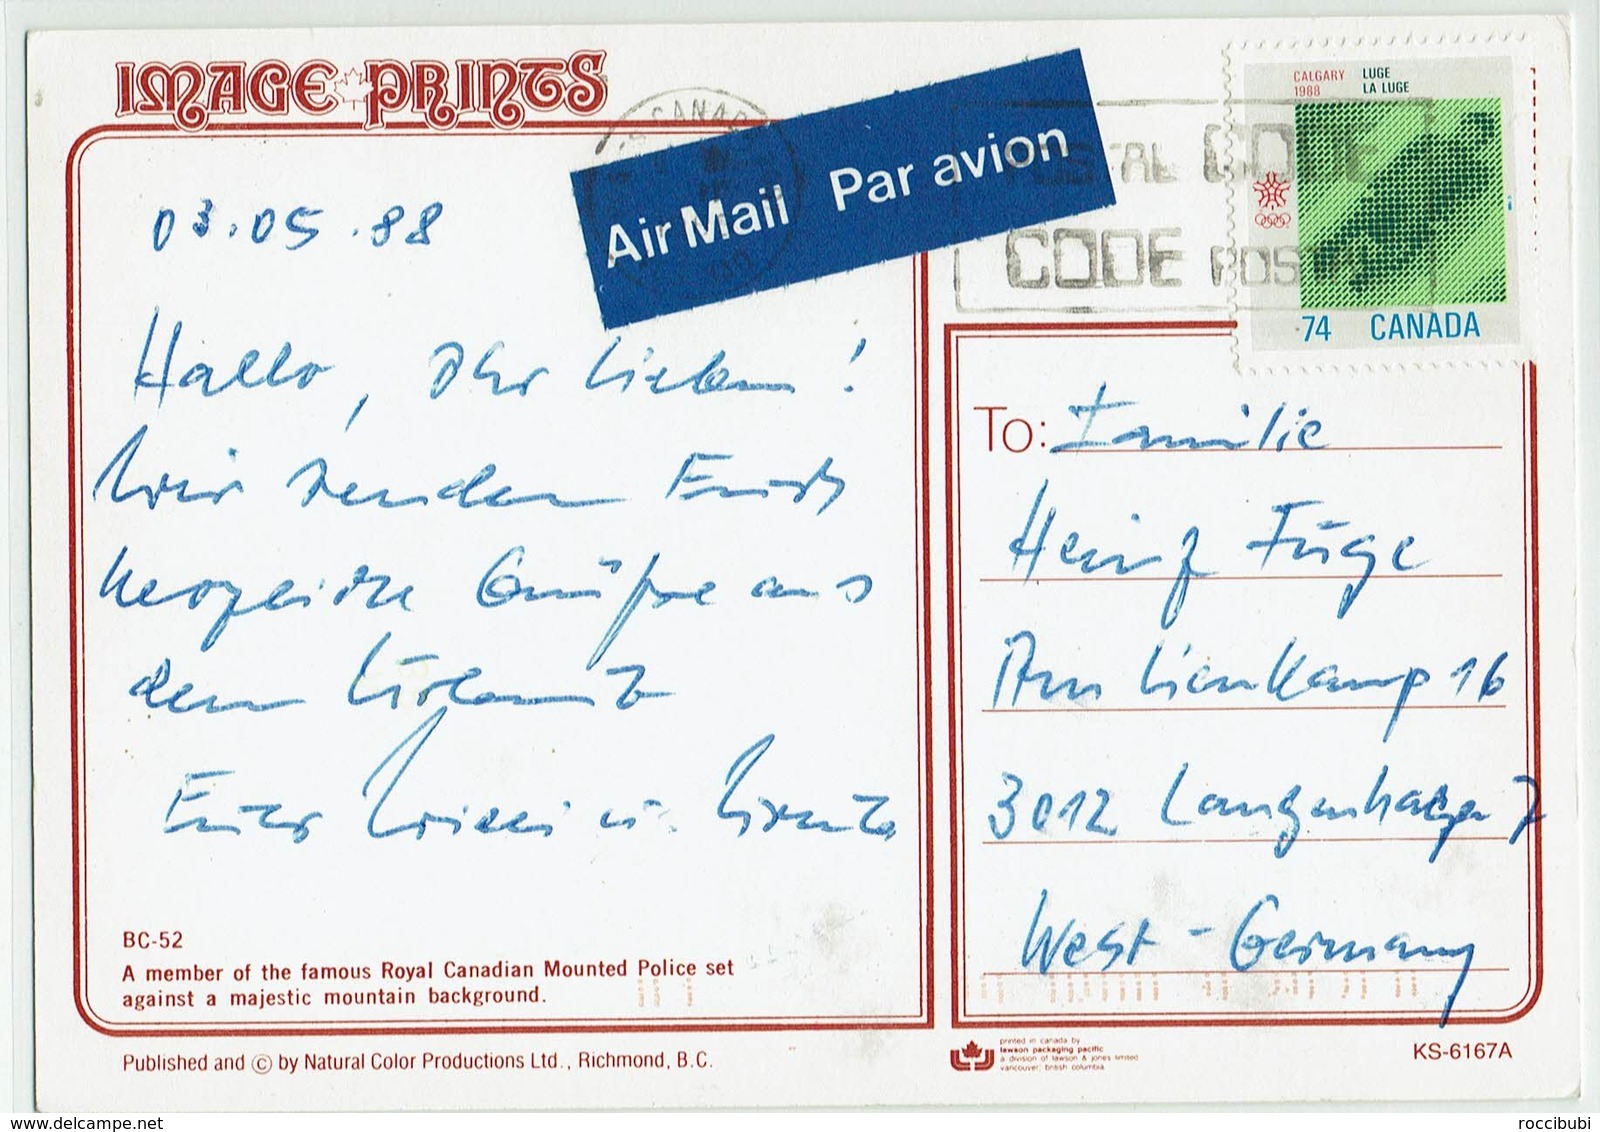 IMAGE PRINTS
CANADA
Air Mail Par avion
POSTAL CODE
CODE POSTAL
CALGARY
1988
LUGE
LA LUGE
74 CANADA
03.05.88
Hallo, Ihr Lieben!
Wir senden Euch
herzliche Grüße aus
dem Urlaub
Eure u.
BC-52
A member of the famous Royal Canadian Mounted Police set
against a majestic mountain background.
To: Familie
Heinz Füge
Am Lienkamp 16
3012 Langenhagen 7
West-Germany
Published and © by Natural Color Productions Ltd., Richmond, B.C.
printed in canada by
lawson packaging pacific
a division of lawson & jones limited
vancouver, british columbia
KS-6167A
www.delcampe.net
roccibubi